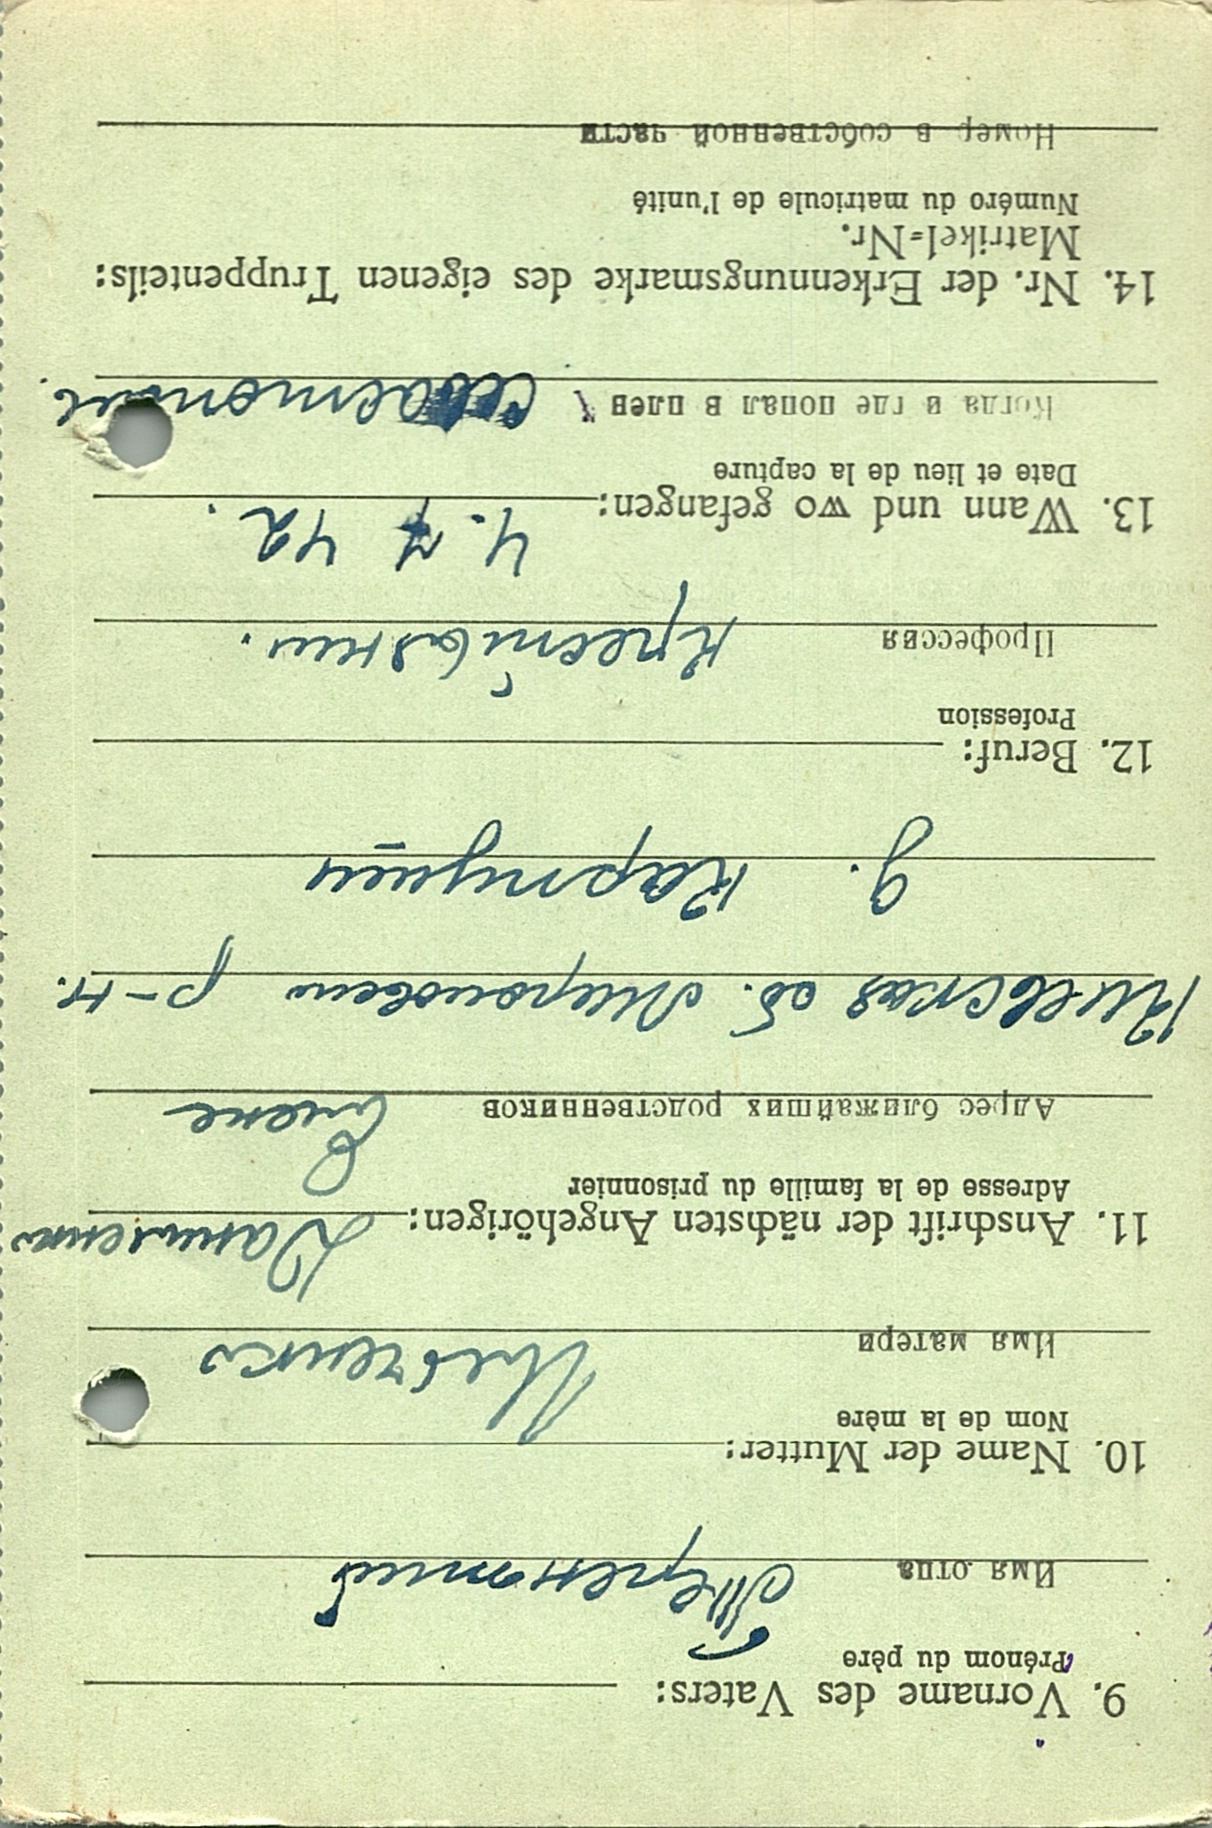 9. Vorname des Vaters:
Prénom du père
Имя отца Терентий
10. Name der Mutter:
Nom de la mère
Имя матери Шевченко
11. Anschrift der nächsten Angehörigen: Даниленко
Adresse de la famille du prisonnier
Адрес ближайших родственников Елене
Киевская об. р-н.
д.
12. Beruf:
Profession
Профессия
13. Wann und wo gefangen: 4. 7 42.
Date et lieu de la capture
Когда и где попал в плен
14. Nr. der Erkennungsmarke des eigenen Truppenteils:
Matrikel=Nr.
Numéro du matricule de l'unité
Номер в собственной части